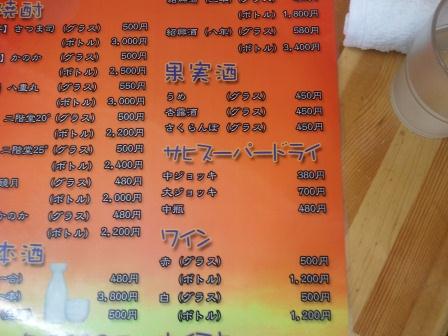 焼酎
さつま司 (グラス) 500円
(ボトル) 3,000円
かのか (グラス) 500円
(ボトル) 2,500円
八重丸 (グラス) 550円
(ボトル) 3,000円
二階堂20° (グラス) 500円
(ボトル) 2,200円
二階堂25° (グラス) 500円
(ボトル) 2,400円
鏡月 (グラス) 480円
(ボトル) 2,000円
かのか (グラス) 480円
(ボトル) 2,200円
本酒
480円
3,800円
500円
(ボトル) 1,800円
紹興酒 (八年) (グラス) 580円
(ボトル) 3,400円
果実酒
うめ (グラス) 450円
杏露酒 (グラス) 450円
さくらんぼ (グラス) 450円
サヒスーパードライ
中ジョッキ 380円
大ジョッキ 700円
中瓶 480円
ワイン
赤 (グラス) 500円
(ボトル) 1,200円
白 (グラス) 500円
(ボトル) 1,200円